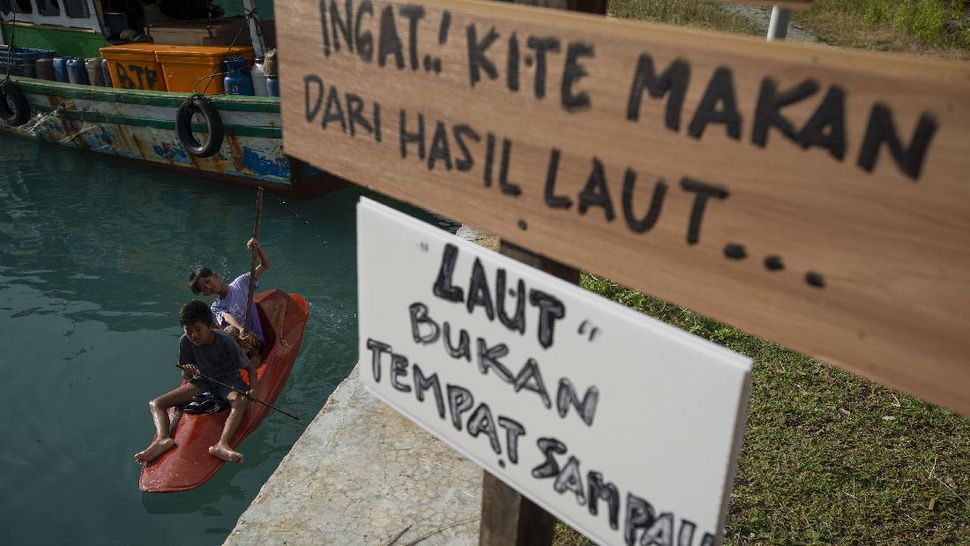 INGAT..! KITE MAKAN
DARI HASIL LAUT...
"LAUT"
BUKAN
TEMPAT SAMPAH
BTB